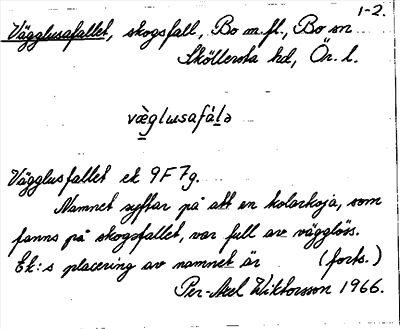 1-2.
Vägglusafallet, skogsfall, Bo m.fl., Bo sn
Sköllersta hd, Ör. l.
væ̀glusafàlə
Vägglusfallet ek 9F7g.
Namnet syftar på att en kolarkoja, som
fanns på skogsfallet, var full av vägglöss.
Ek:s placering av namnet är (forts.)
Per-Axel Wiktorsson 1966.